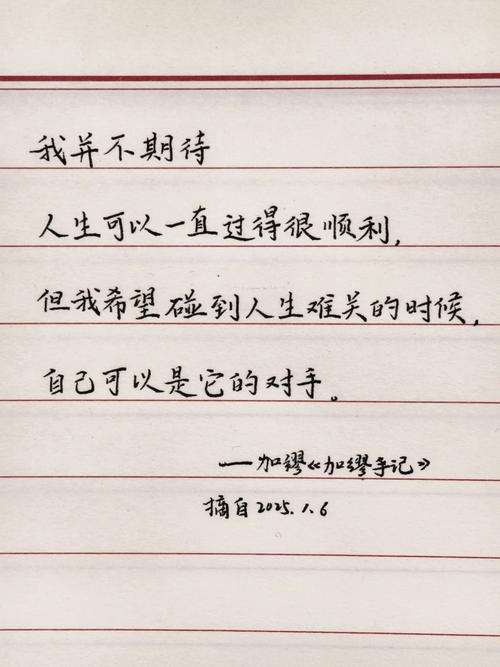 我并不期待
人生可以一直过得很顺利,
但我希望碰到人生难关的时候,
自己可以是它的对手。
——加缪《加缪手记》
摘自2025.1.6